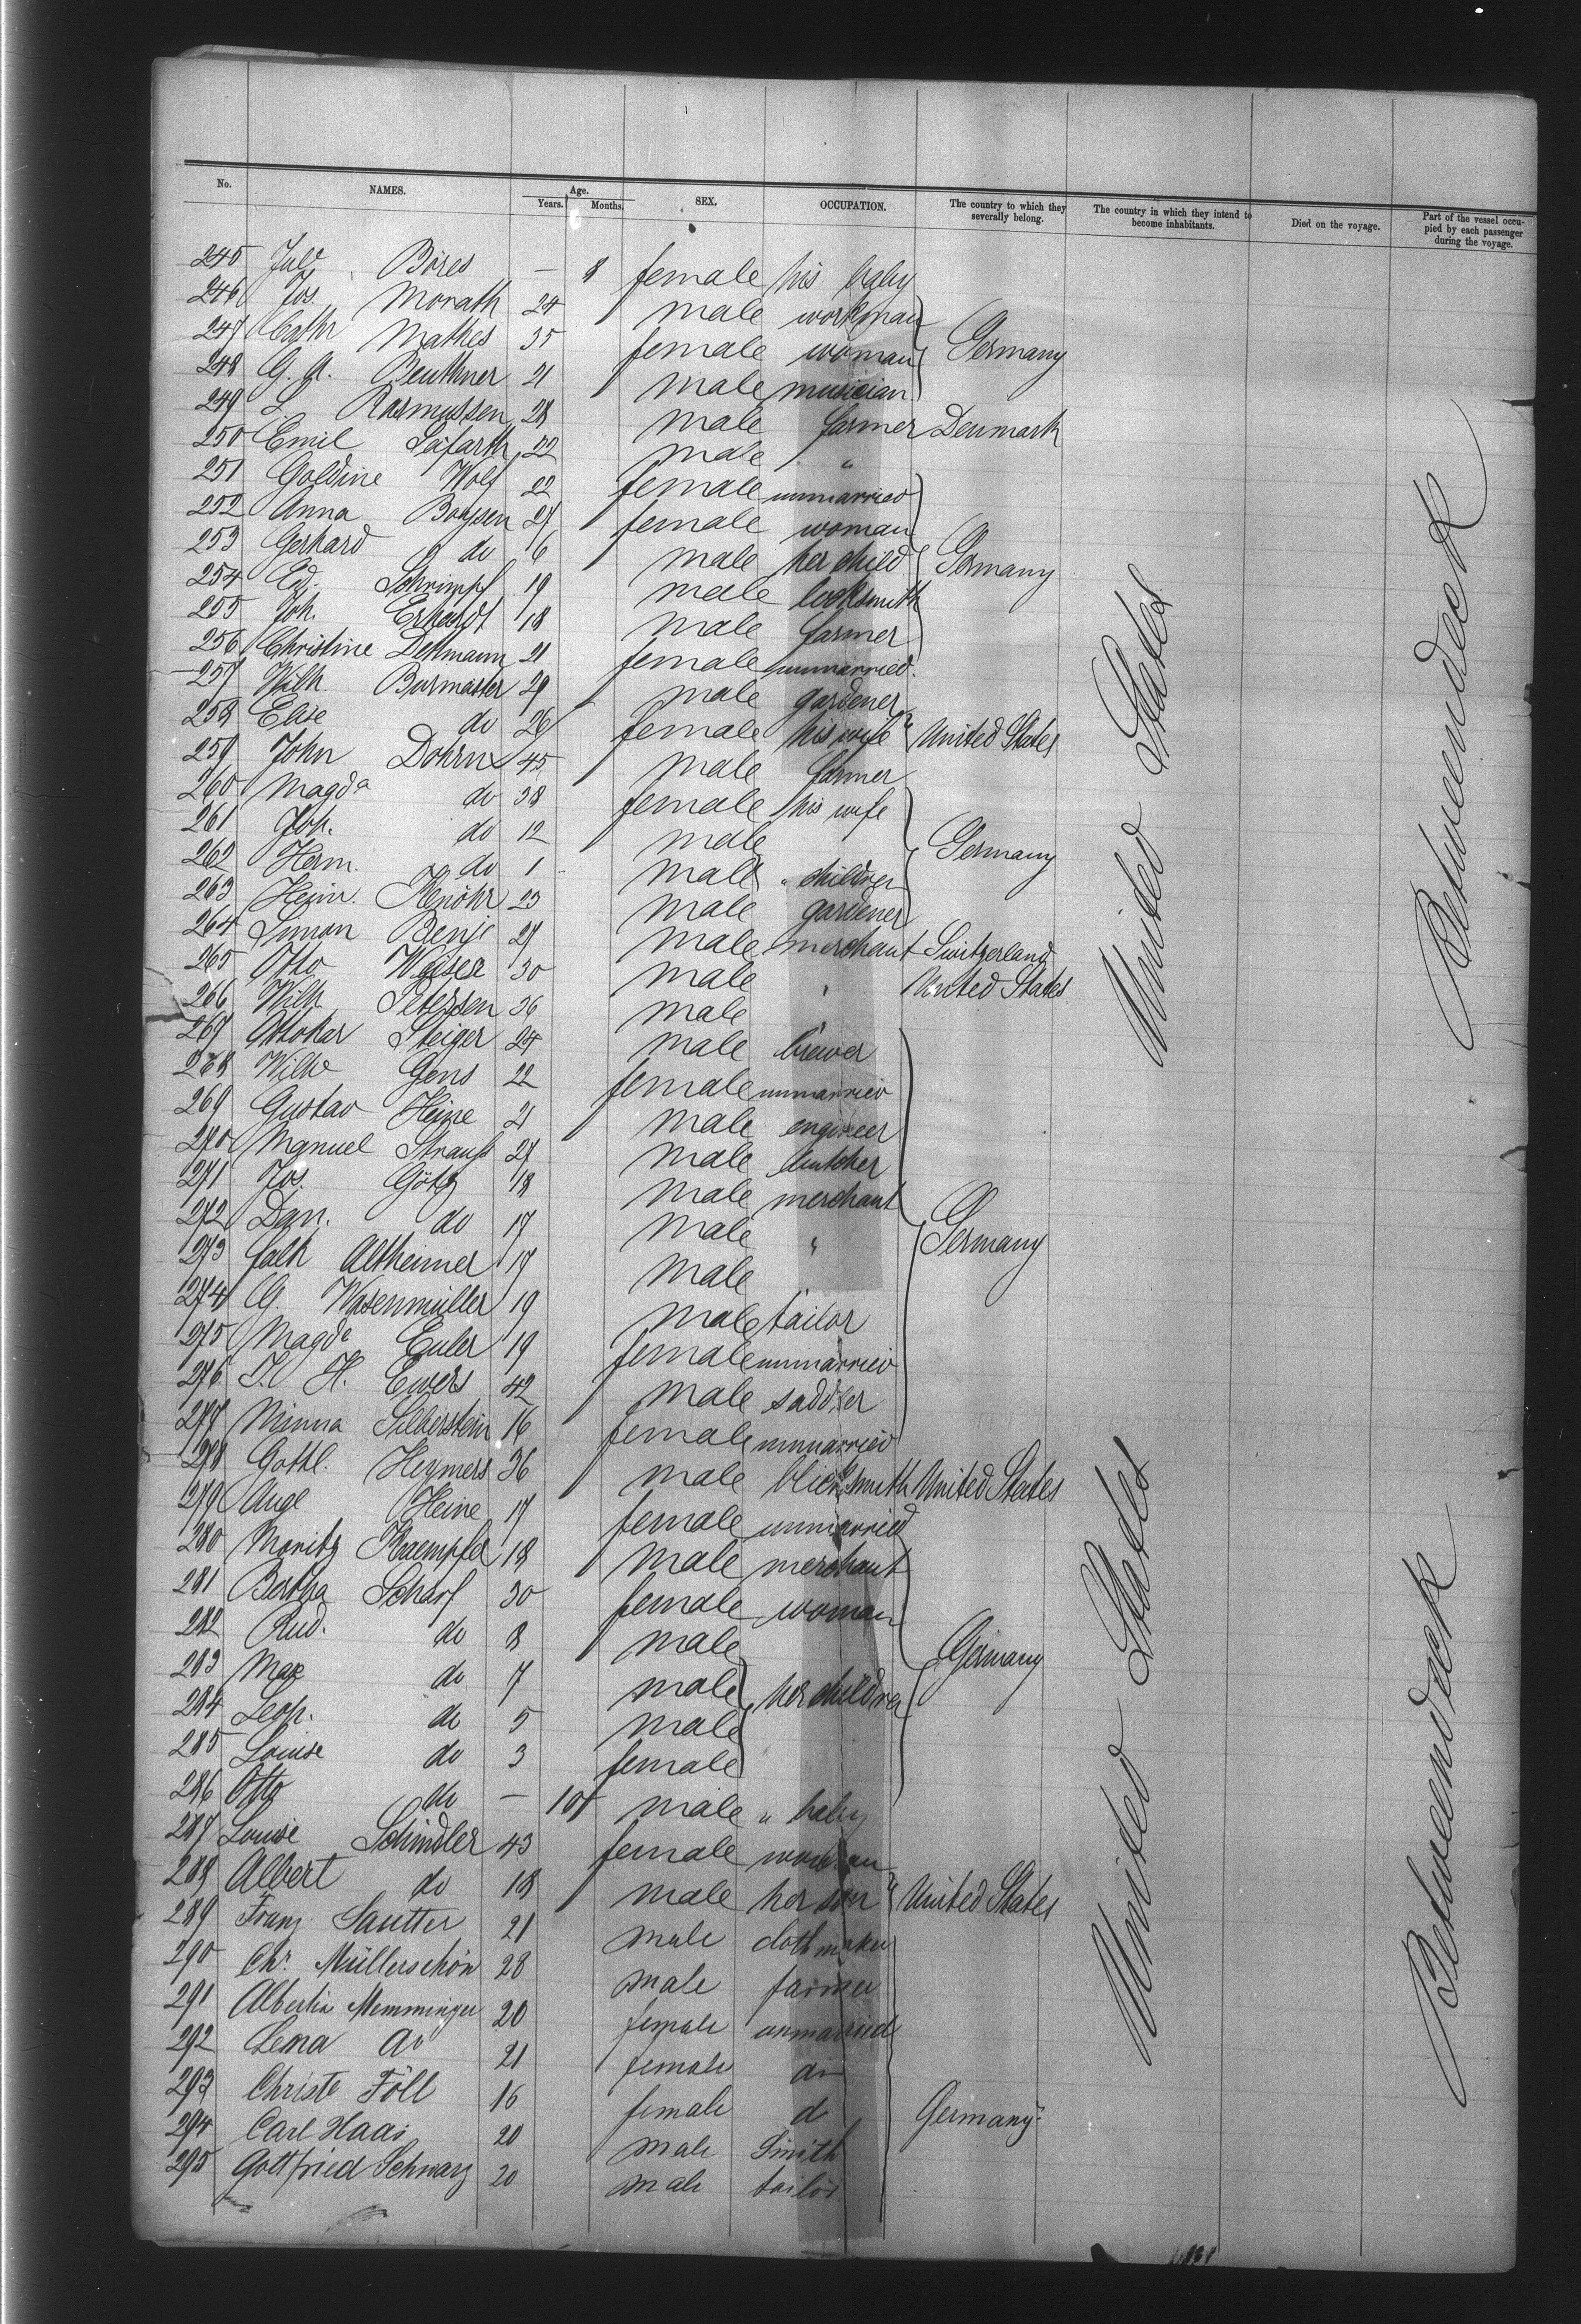 No. NAMES. Age. Years. Months. SEX. OCCUPATION. The country to which they severally belong. The country in which they intend to become inhabitants. Died on the voyage. Part of the vessel occupied by each passenger during the voyage.
245 Böres — 8 female his baby
246 Jos. Morath 24 male workman
247 Cathr Mathes 35 female woman Germany
248 G. A. Beuthner 21 male musician
249 L. Rasmussen 28 male farmer Denmark
250 Emil Seifarth 22 male "
251 Goldine Wolf 22 female unmarried
252 Anna Boysen 27 female woman
253 Gerhard do 6 male her child Germany
254 Ed. Schrimpf 19 male locksmith
255 Joh. Erhardt 18 male farmer
256 Christine Dethmann 21 female unmarried
257 Wilh. Burmaster 29 male gardener
258 Elise do 26 female his wife United States
259 John Dohrn 45 male farmer
260 Magda do 38 female his wife
261 Joh. do 12 male Germany
262 Herm. do 1 male " children
263 Heinr. Knöhr 23 male gardener
264 Simon Benj 27 male merchant Switzerland
265 Otto Weiser 30 male " United States
266 Wilh Petersen 36 male "
267 Ottokar Steiger 24 male brewer
268 Wilhe Gens 22 female unmarried
269 Gustav Heine 21 male engineer
270 Manuel Strauß 27 male butcher
271 Jos. Götz 18 male merchant
272 Dan. do 17 male " Germany
273 Falk Altheimer 17 male "
274 G. Wasenmüller 19 male tailor
275 Magde Euler 19 female unmarried
276 H. Ewers 42 male saddler
277 Minna Silberstein 16 female unmarried
278 Gottl. Heymers 36 male smith United States
279 Auge Heine 17 female unmarried
280 Moritz Kaempfer 18 male merchant
281 Bertha Scharf 30 female woman
282 Rud. do 8 male Germany
283 Max do 7 male her children
284 Leop. do 5 male
285 Louise do 3 female
286 Otto do — 10 male " baby
287 Louise Schindler 43 female woman
288 Albert do 18 male her son United States
289 Franz Sautter 21 male clothmaker
290 Chr. Müllerschön 28 male farmer
291 Albertin Memminger 20 female unmarried
292 Lena do 21 female do
293 Christe Föll 16 female d Germany
294 Carl Haas 20 male Smith
295 Gottfried Schwarz 20 male tailor
United States
United States
Betweendeck
Betweendeck